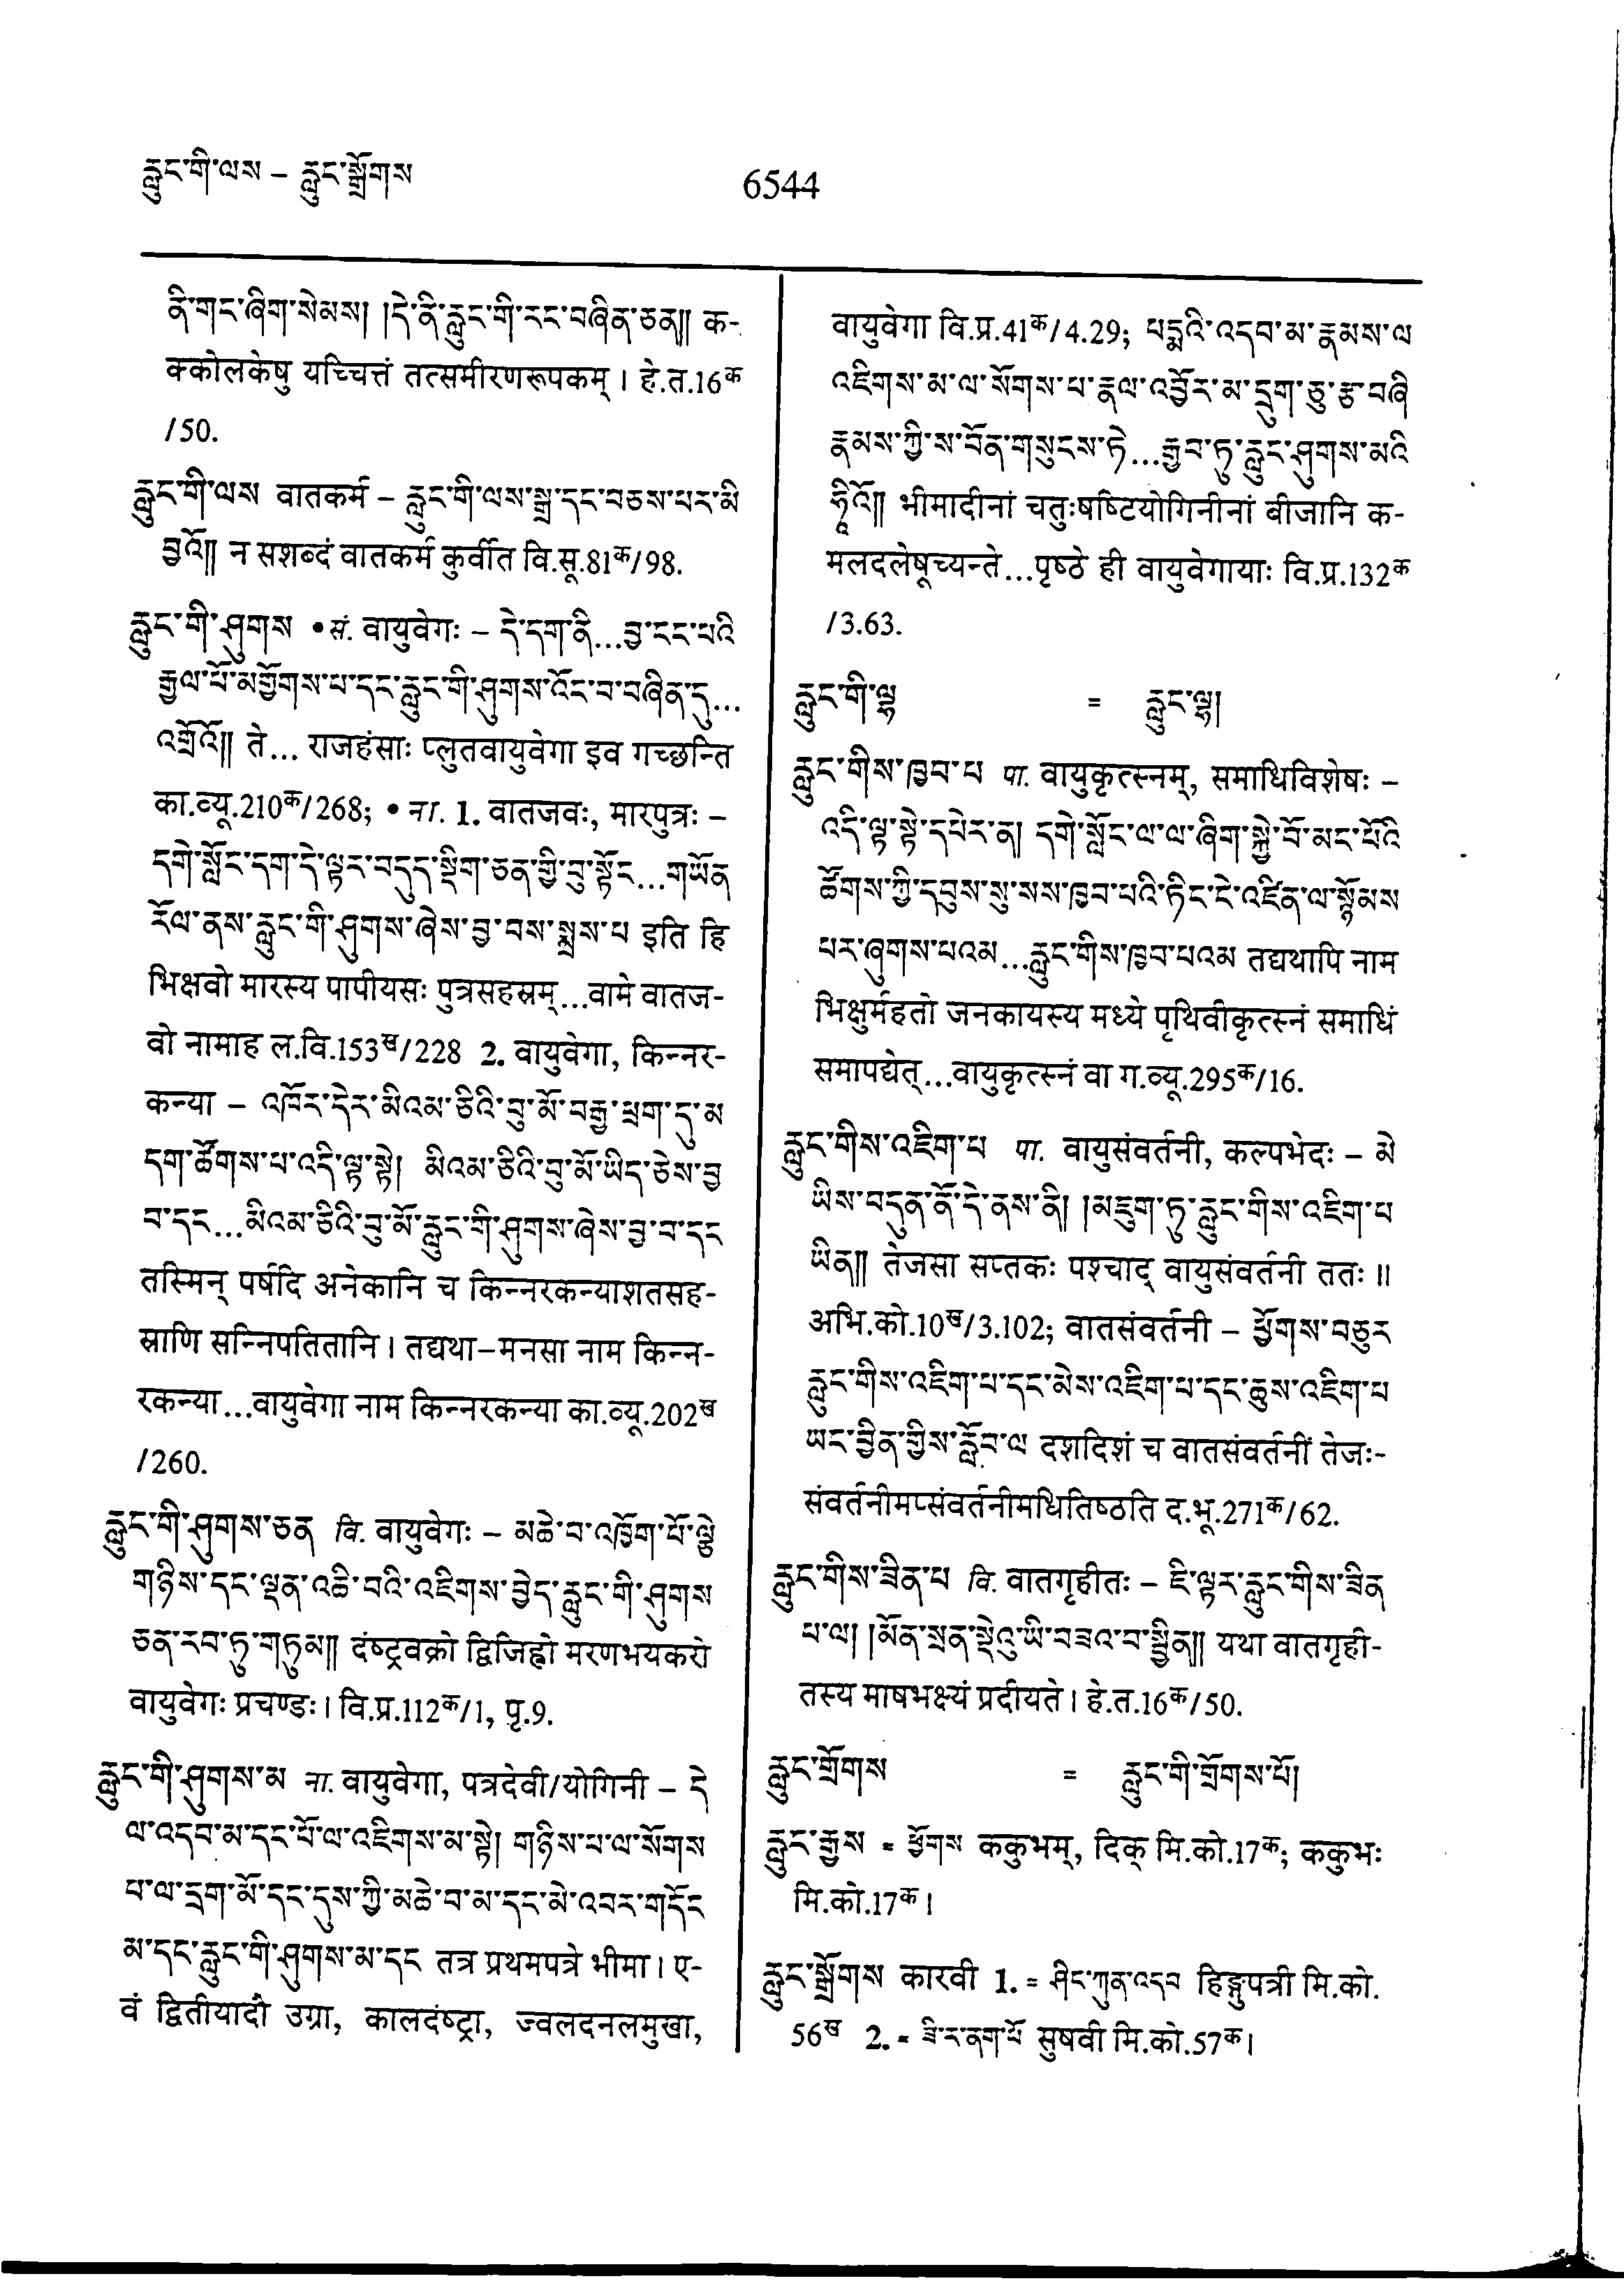 རླུང་གི་ལས – རླུང་སྒྲོགས
6544
ནི་གང་ཞིག་སེམས། །དེ་ནི་རླུང་གི་རང་བཞིན་ཅན།། क-
क्कोलकेषु यच्चित्तं तत्समीरणरूपकम् । हे.त.16क
/50.
རླུང་གི་ལས वातकर्म – རླུང་གི་ལས་སྒྲ་དང་བཅས་པར་མི
བྱའོ།། न सशब्दं वातकर्म कुर्वीत वि.सू.81क/98.
རླུང་གི་ཤུགས •सं. वायुवेगः – དེ་དག་ནི...བྱ་ངང་པའི
རྒྱལ་པོ་མགྱོགས་པ་དང་རླུང་གི་ཤུགས་འོང་བ་བཞིན་དུ...
འགྲོའོ།། ते... राजहंसाः प्लुतवायुवेगा इव गच्छन्ति
का.व्यू.210क/268; • ना. 1. वातजवः, मारपुत्रः –
དགེ་སློང་དག་དེ་ལྟར་བདུད་སྡིག་ཅན་གྱི་བུ་སྟོང...གཡོན
རོལ་ནས་རླུང་གི་ཤུགས་ཞེས་བྱ་བས་སྨྲས་པ इति हि
भिक्षवो मारस्य पापीयसः पुत्रसहस्रम्...वामे वातज-
वो नामाह ल.वि.153ख/228 2. वायुवेगा, किन्नर-
कन्या – འཁོར་དེར་མིའམ་ཅིའི་བུ་མོ་བརྒྱ་ཕྲག་དུ་མ
དག་ཚོགས་པ་འདི་ལྟ་སྟེ། མིའམ་ཅིའི་བུ་མོ་ཡིད་ཅེས་བྱ
བ་དང...མིའམ་ཅིའི་བུ་མོ་རླུང་གི་ཤུགས་ཞེས་བྱ་བ་དང
तस्मिन् पर्षदि अनेकानि च किन्नरकन्याशतसह-
स्राणि सन्निपतितानि । तद्यथा–मनसा नाम किन्न-
रकन्या...वायुवेगा नाम किन्नरकन्या का.व्यू.202ख
/260.
རླུང་གི་ཤུགས་ཅན वि. वायुवेगः – མཆེ་བ་འཁྱོག་པོ་ལྕེ
གཉིས་དང་ལྡན་འཆི་བའི་འཇིགས་བྱེད་རླུང་གི་ཤུགས
ཅན་རབ་ཏུ་གཏུམ།། दंष्ट्रवक्रो द्विजिह्वो मरणभयकरो
वायुवेगः प्रचण्डः । वि.प्र.112क/1, पृ.9.
རླུང་གི་ཤུགས་མ ना. वायुवेगा, पत्रदेवी/योगिनी – དེ
ལ་འདབ་མ་དང་པོ་ལ་འཇིགས་མ་སྟེ། གཉིས་པ་ལ་སོགས
པ་ལ་དྲག་མོ་དང་དུས་ཀྱི་མཆེ་བ་མ་དང་མེ་འབར་གདོང
མ་དང་རླུང་གི་ཤུགས་མ་དང तत्र प्रथमपत्रे भीमा । ए-
वं द्वितीयादौ उग्रा, कालदंष्ट्रा, ज्वलदनलमुखा,
वायुवेगा वि.प्र.41क/4.29; པདྨའི་འདབ་མ་རྣམས་ལ
འཇིགས་མ་ལ་སོགས་པ་རྣལ་འབྱོར་མ་དྲུག་ཅུ་རྩ་བཞི
རྣམས་ཀྱི་ས་བོན་གསུངས་ཏེ...རྒྱབ་ཏུ་རླུང་ཤུགས་མའི
ཧཱིའོ།། भीमादीनां चतुःषष्टियोगिनीनां बीजानि क-
मलदलेषूच्यन्ते...पृष्ठे ही वायुवेगायाः वि.प्र.132क
/3.63.
རླུང་གི་ལྷ = རླུང་ལྷ།
རླུང་གིས་ཁྱབ་པ पा. वायुकृत्स्नम्, समाधिविशेषः –
འདི་ལྟ་སྟེ་དཔེར་ན། དགེ་སློང་ལ་ལ་ཞིག་སྐྱེ་བོ་མང་པོའི
ཚོགས་ཀྱི་དབུས་སུ་སས་ཁྱབ་པའི་ཏིང་ངེ་འཛིན་ལ་སྙོམས
པར་ཞུགས་པའམ...རླུང་གིས་ཁྱབ་པའམ तद्यथापि नाम
भिक्षुर्महतो जनकायस्य मध्ये पृथिवीकृत्स्नं समाधिं
समापद्येत्...वायुकृत्स्नं वा ग.व्यू.295क/16.
རླུང་གིས་འཇིག་པ पा. वायुसंवर्तनी, कल्पभेदः – མེ
ཡིས་བདུན་ནོ་དེ་ནས་ནི། །མཇུག་ཏུ་རླུང་གིས་འཇིག་པ
ཡིན།། तेजसा सप्तकः पश्चाद् वायुसंवर्तनी ततः ॥
अभि.को.10ख/3.102; वातसंवर्तनी – ཕྱོགས་བཅུར
རླུང་གིས་འཇིག་པ་དང་མེས་འཇིག་པ་དང་ཆུས་འཇིག་པ
ཡང་བྱིན་གྱིས་རློབ་ལ दशदिशं च वातसंवर्तनीं तेजः-
संवर्तनीमप्संवर्तनीमधितिष्ठति द.भू.271क/62.
རླུང་གིས་ཟིན་པ वि. वातगृहीतः – ཇི་ལྟར་རླུང་གིས་ཟིན
པ་ལ། །མོན་སྲན་སྡེའུ་ཡི་བཟའ་བ་སྦྱིན།། यथा वातगृही-
तस्य माषभक्ष्यं प्रदीयते । हे.त.16क/50.
རླུང་གྲོགས = རླུང་གི་གྲོགས་པོ།
རླུང་རྒྱས = ཕྱོགས ककुभम्, दिक् मि.को.17क; ककुभः
मि.को.17क ।
རླུང་སྒྲོགས कारवी 1. = ཤིང་ཀུན་འདབ हिङ्गुपत्री मि.को.
56ख 2. = ཟི་ར་ནག་པོ सुषवी मि.को.57क ।